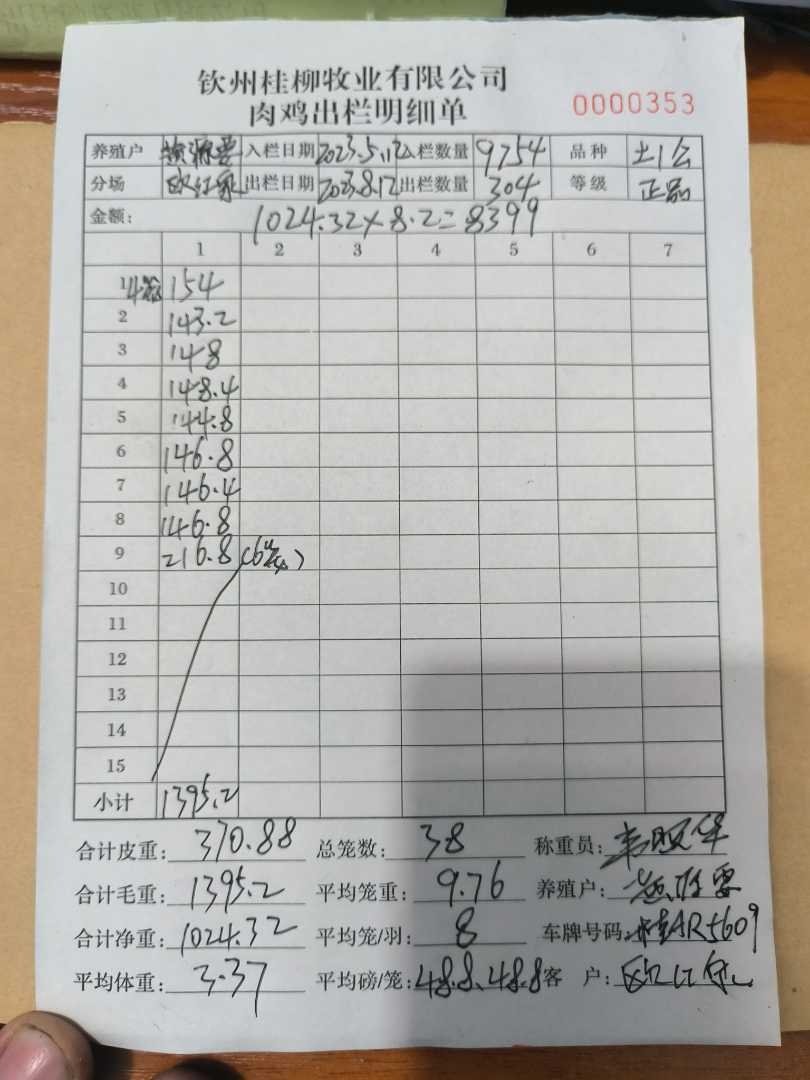 钦州桂柳牧业有限公司
肉鸡出栏明细单
0000353
养殖户 入栏日期 2023.5.12 入栏数量 9754 品种 土1公
分场 出栏日期 2023.8.12 出栏数量 304 等级 正品
金额: 1024.32×8.2=8399
1 2 3 4 5 6 7
1 4笼 154
2 143.2
3 148
4 148.4
5 144.8
6 146.8
7 146.4
8 146.8
9 216.8 (6笼)
10
11
12
13
14
15
小计 1395.2
合计皮重: 370.88 总笼数: 38 称重员:
合计毛重: 1395.2 平均笼重: 9.76 养殖户:
合计净重: 1024.32 平均笼/羽: 8 车牌号码: 桂AR5609
平均体重: 3.37 平均磅/笼: 48.8、48.8 客户: